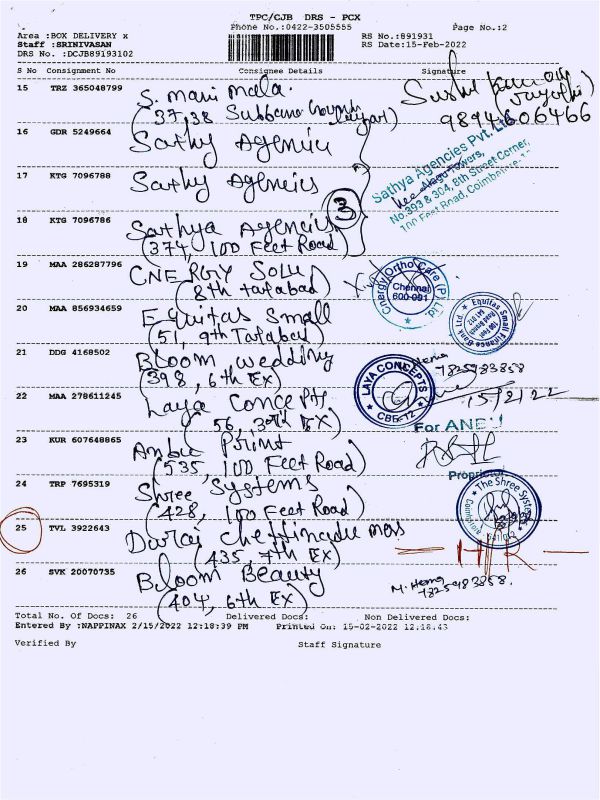 TPC/CJB DRS - PCX
Phone No.:0422-3505555 Page No.:2
Area :BOX DELIVERY x RS No.:891931
Staff :SRINIVASAN RS Date:15-Feb-2022
DRS No. :DCJB89193102
S No Consignment No Consignee Details Signature
15 TRZ 365048799 S. mani mala.
(37,38 Subbana
9894606466
16 GDR 5249664 Sathy Agencies
17 KTG 7096788 Sathy Agencies
Sathya Agencies Pvt. Ltd
No.393 & 304, 8th Street Corner,
100 Feet Road, Coimbatore-
3
18 KTG 7096786 Sathya Agencies
(374, 100 Feet Road)
19 MAA 286287796 CNERGY SOLU
(8th tatabad)
Cnergy Ortho Care (P) Ltd
Chennai
600-091
20 MAA 856934659 Equitas Small
(51, 9th Tatabad)
Equitas Small Finance Bank Ltd.
21 DDG 4168502 Bloom wedding
(398, 6th Ex)
Hema
7825983858
22 MAA 278611245 Laya Concepts
(56, Ex)
LAYA CONCEPTS
CBE-12
15/2/22
23 KUR 607648865 Anbu Print
(535, 100 Feet Road)
For ANBU
Proprietor
24 TRP 7695319 Shree Systems
(428, 100 Feet Road)
The Shree Systems
25 TVL 3922643 Durai Chettinadu mess
(435, 7th Ex)
26 SVK 20070735 Bloom Beauty
(404, 6th Ex)
M. Hema
7825983858.
Total No. Of Docs: 26 Delivered Docs: Non Delivered Docs:
Entered By :NAPPINAX 2/15/2022 12:18:39 PM Printed On: 15-02-2022 12.18.43
Verified By Staff Signature